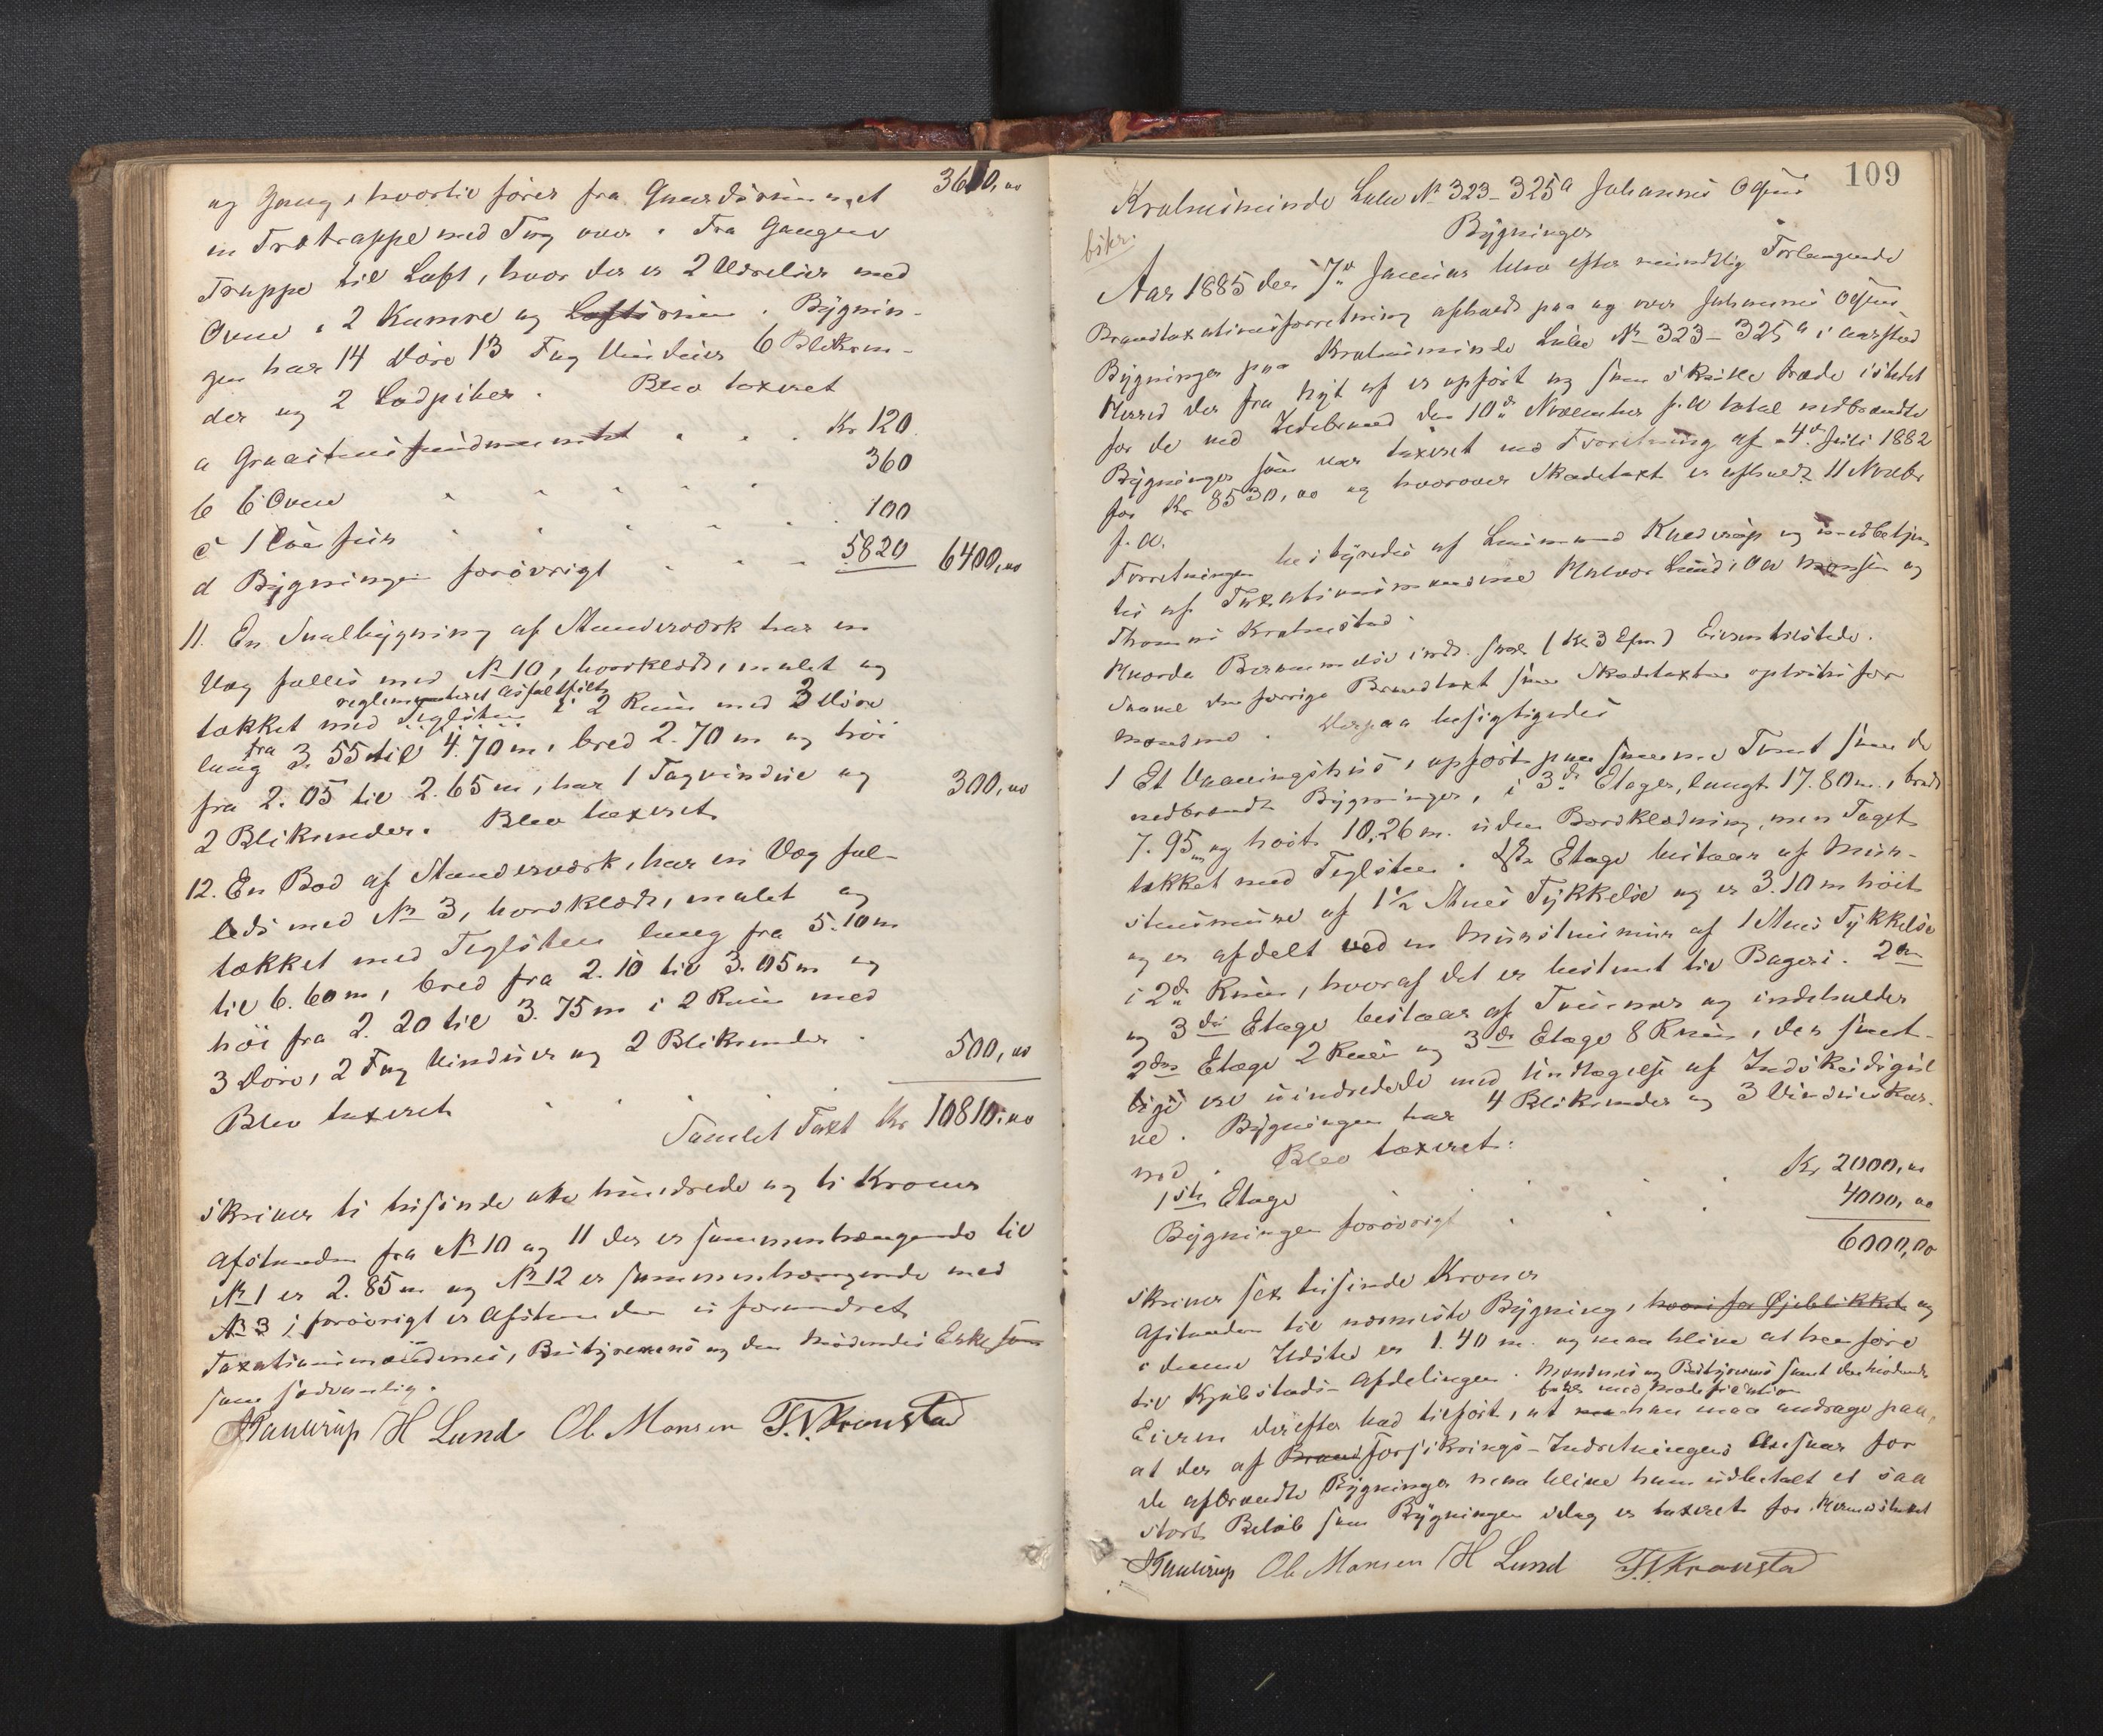 og Gang, hvortil fører fra Gaardsrummet 3610,00
en Trætrappe med Tag over. Fra Gangen
Trappe til Loft, hvor der er 2 Værelser med
Ovne, 2 Kamre og Loftsrum. Bygnin-
gen har 14 Døre 13 Fag Vinduer 6 Blikren-
der og 2 Lødpiber. Blev taxeret
a Graastensfundamentet . . . Kr 120
b 6 Ovne 360
c 1 Comfur 100
d Bygningen forøvrigt 5820 6400,00
11. En Svalbygning af Stenderværk har en
Væg fælles med № 10, bordklædt, malet og
reglementeret Asfaltfilt
tækket med Teglsten i 2 Rum med 3 Døre
lang fra 3.55 til 4.70 m, bred 2.70 m og høi
fra 2.05 til 2.65 m, har 1 Tagvindue og
2 Blikrender. Blev taxeret 300,00
12. En Bod af Stenderværk, har en Væg fæl-
leds med № 3, bordklædt, malet og
tækket med Teglsten lang fra 5.10 m
til 6.60 m, bred fra 2.10 til 3.05 m og
høi fra 2.20 til 3.75 m i 2 Rum med
3 Døre, 2 Fag Vinduer og 2 Blikrender.
Blev taxeret 500,00
Samlet Taxt Kr 10810,00
skriver ti tusinde otte hundrede og ti Kroner
Afstanden fra № 10 og 11 der er sammenhængende til
№ 1 er 2.85 m og № 12 er sammenhængende med
№ 3, forøvrigt er Afstanden uforandret
Taxationsmændenes, Bestyrerens og den mødendes
som sædvanlig.
H Lund Ol. Monsen T. N. Kronstad
109
Krohnsminde Løbe № 323-325a Johannes Olsens
Bygninger
bskr.
Aar 1885 den 7de Januar blev efter mundtlig Forlangende
Brandtaxationsforretning afholdt paa og over Johannes Olsens
Bygninger paa Krohnsminde Løbe № 323-325a i Aarstad
Herred der fra nyt af er opført og som skulle træde istedet
for de ved Ildebrand den 10de November f.A. total nedbrændte
Bygninger som var taxeret ved Forretning af 4de Juli 1882
for Kr 8530,00 og hvorover Skadetaxt er afholdt 11 Novbr
f.A.
Forretningen bestyredes af Lensmand og medbetjen-
tes af Taxationsmændene Halvor Lund, Ole Monsen og
Thomas Krohnstad.
Eieren tilstede.
Saavel den forrige Brandtaxt som Skadetaxten oplæstes for
Mændene. Derpaa besigtigedes
1 Et Vaaningshus, opført paa samme Tomt som de
nedbrændte Bygninger, i 3de Etager, langt 17.80 m, bredt
7.95 m og høit 10,26 m. uden Bordklædning, men Taget
tækket med Teglsten. 1ste Etage bestaar af Mur-
stensmure af 1½ Stens Tykkelse og er 3.10 m høit
og er afdelt ved en Murstensmur af 1 Stens Tykkelse
i 2de Rum, hvoraf det er bestemt til Bageri. 2den
og 3die Etage bestaar af Tømmer og indeholder
2den Etage 2 Rum og 3die Etage 8 Rum, der samt-
lige ere uindredede med Undtagelse af
ne. Bygningen har 4 Blikrender og 3 Vindueskar-
me. Blev taxeret:
1ste Etage Kr 2000,00
Bygningen forøvrigt 4000,00
6000,00
skriver sex tusinde Kroner
Afstanden til nærmeste Bygning, hvori for Øjeblikket og
i denne Ildsted er 1.40 m. og maa blive at henføre
til Kjøbstads-Afdelingen. Mændenes og Bestyrerens samt den mødendes
Eieren derefter bad tilført, at han maa andrage paa,
at der af Brand Forsikrings-Indretningens Ansvar for
de afbrændte Bygninger maa blive ham udbetalt et saa
stort Beløb som Bygningen idag er taxeret for.
Ol. Monsen H Lund T. N. Kronstad